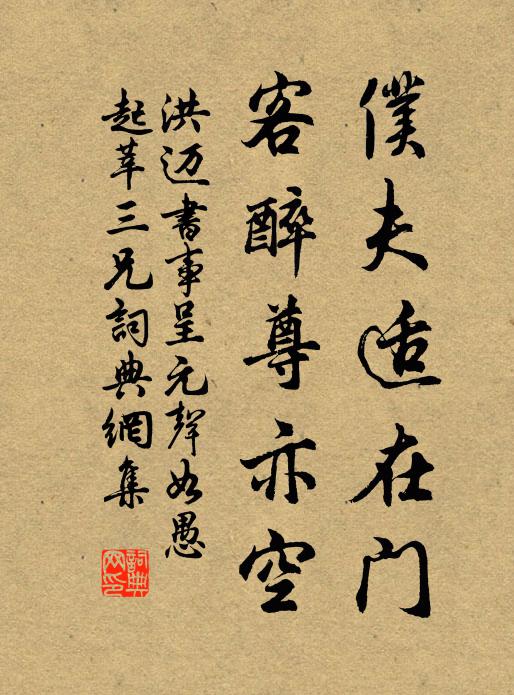 僕夫适在門
客醉尊亦空
洪迈書事呈元聲如愚
起莘三兄詞典網集
詞典网印